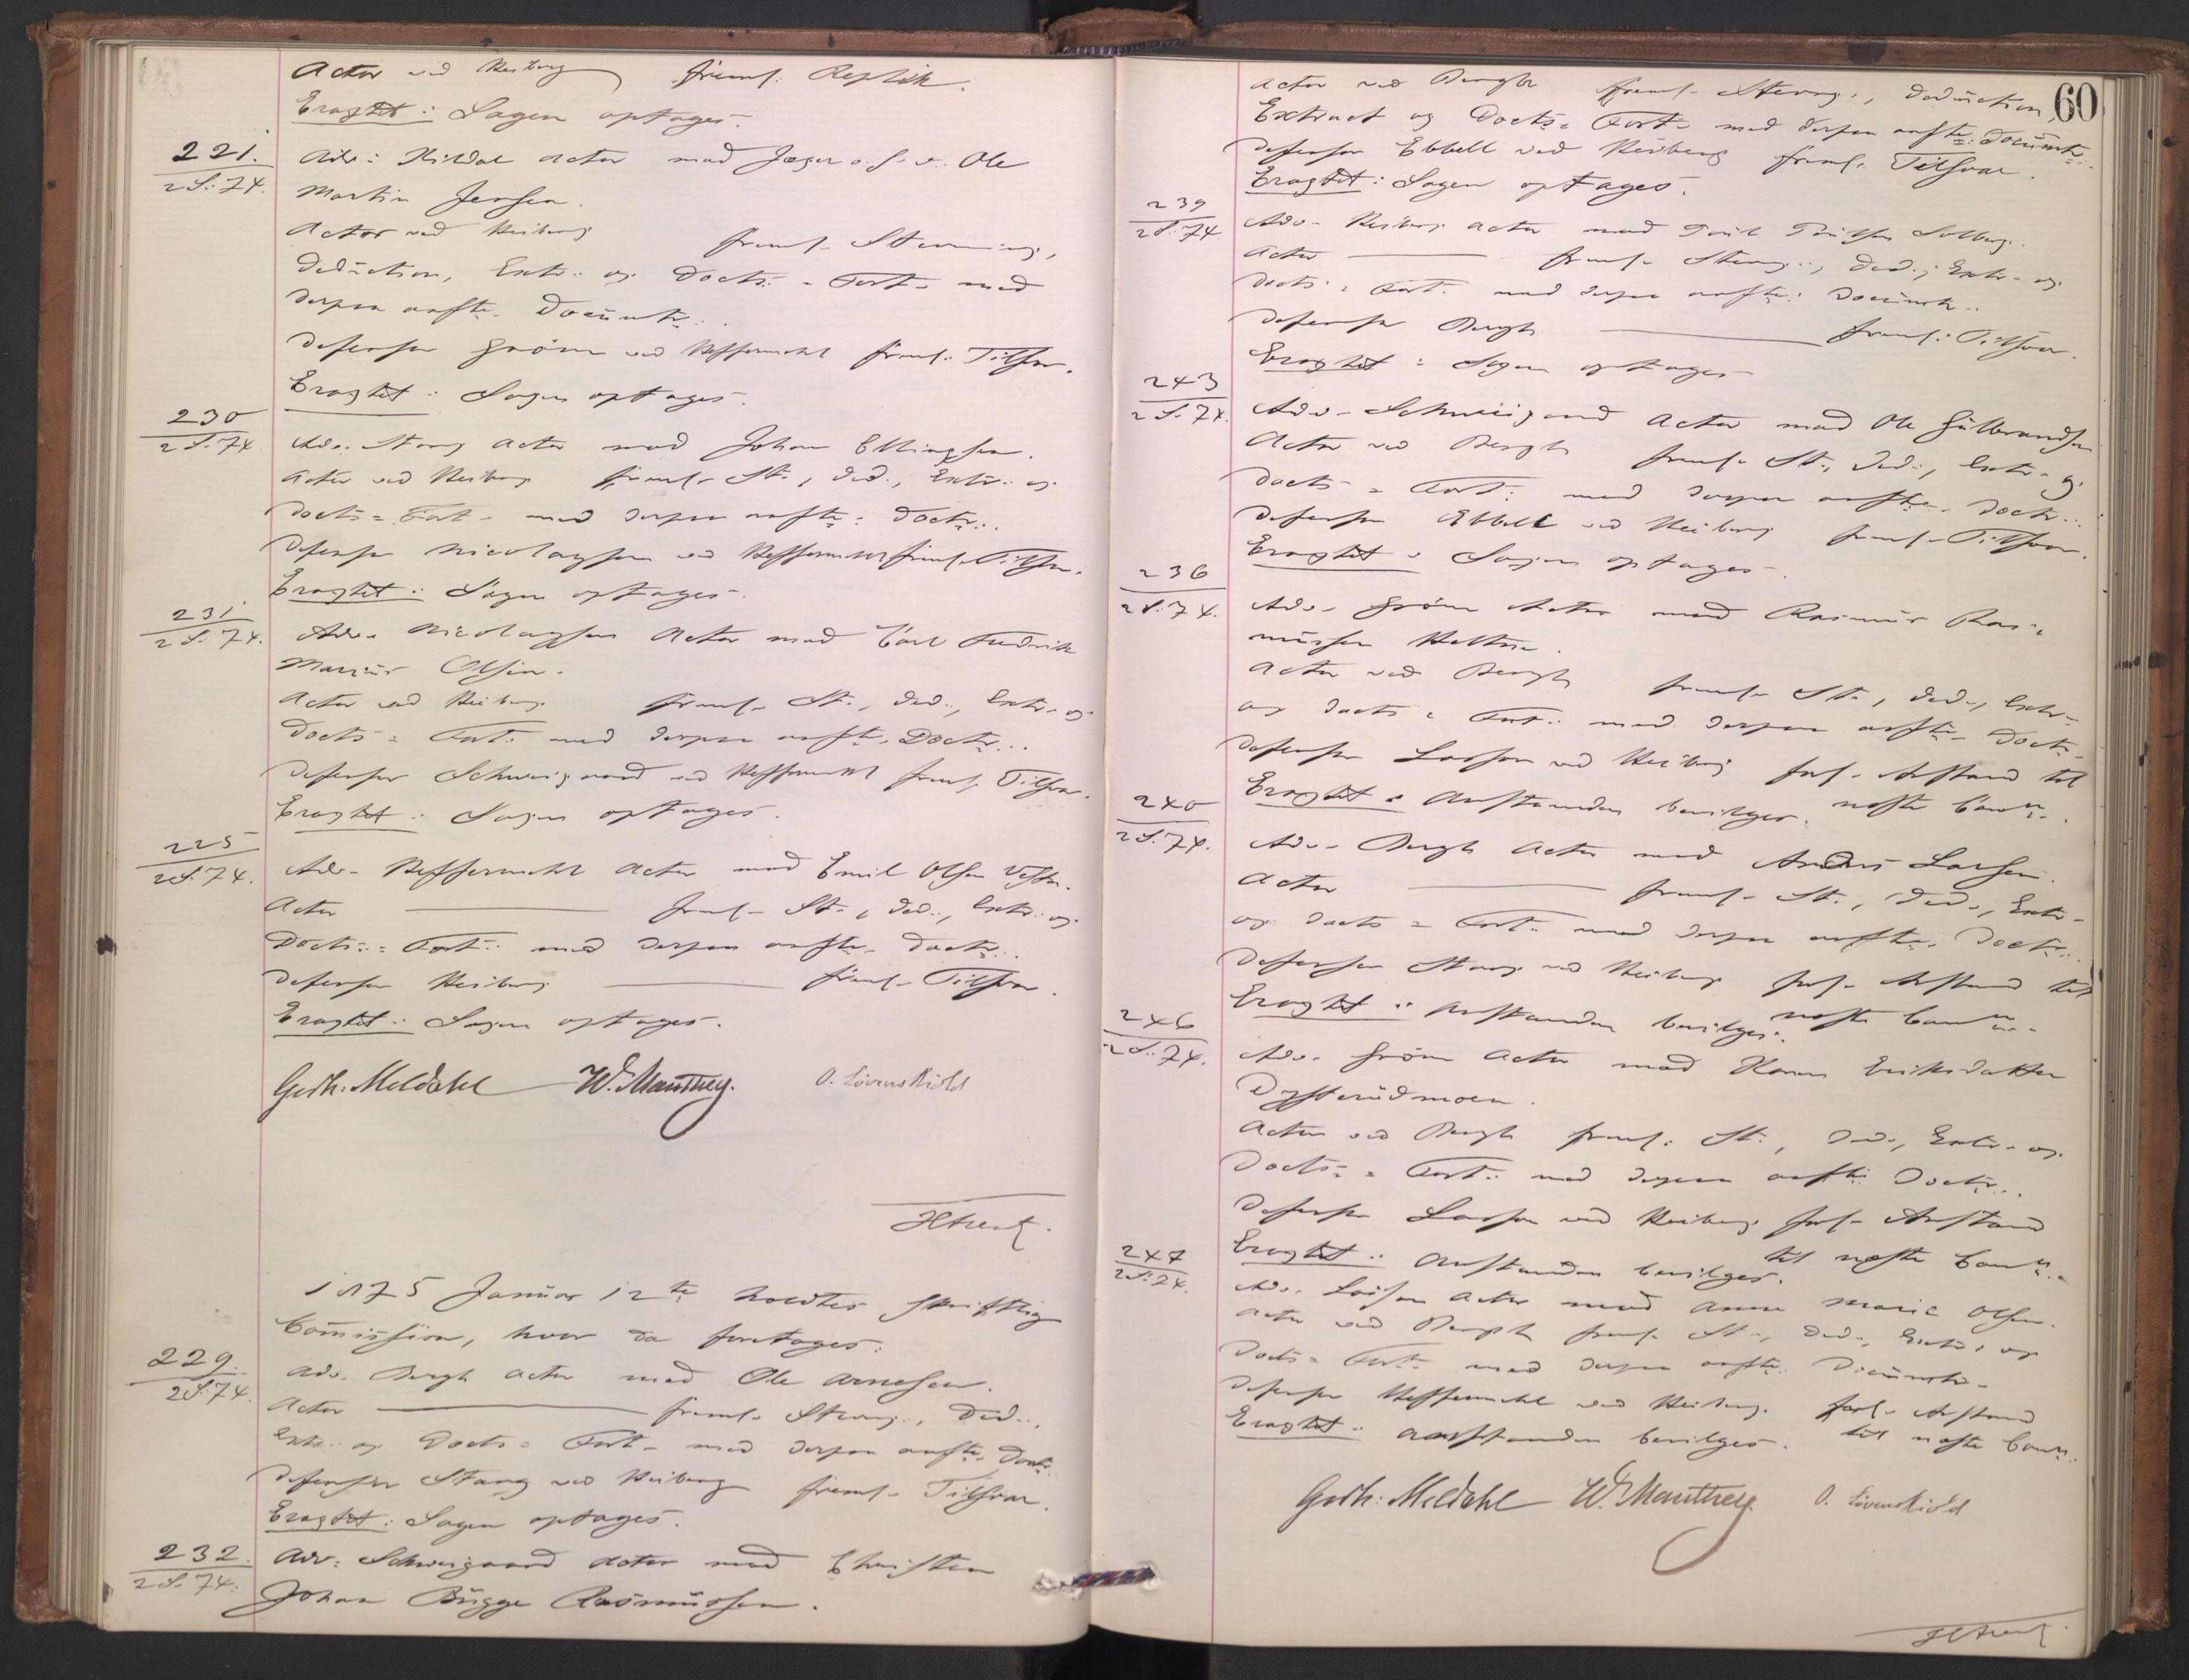 Actor ved Heiberg freml: Replik.
Eragtet: Sagen optages.
221.
2 S: 74.
Adv: Kildal Actor mod Jæger o: f: v. Ole
Martin Jensen.
Actor ved Heiberg freml. Stevning,
Deduction, Extr: og Docts: = Fort. med
derpaa anfte. Documtr.
Defensor Gröm ved Heffermehl freml: Tilsvar.
Eragtet: Sagen optages.
230
2 S. 74.
Adv. Stang Actor mod Johan Ellingsen.
Actor ved Heiberg freml. St., Ded., Extr: og
Docts = Fort. med derpaa anfte: Doctr.
Defensor Nicolaysen ved Heffermehl freml. Tilsvar.
Eragtet: Sagen optages.
231
2 S. 74.
Adv. Nicolaysen Actor mod Carl Fredrik
Marius Olsen.
Actor ved Heiberg freml. St., Ded., Extr. og
Docts = Fort. med derpaa anfte. Doctr.
Defensor Schweigaard ved Heffermehl freml. Tilsvar.
Eragtet: Sagen optages.
225
2 S. 74.
Adv. Heffermehl Actor mod Emil Olsen
Actor freml. St., Ded., Extr: og
Docts: = Fort: med derpaa anfte. Doctr.
Defensor Heiberg freml. Tilsvar.
Eragtet: Sagen optages.
Gerh: Meldahl W. Manthey. O. Lövenskiold
1875 Januar 12te holdtes skriftlig
Commission, hvor da foretages:
229.
2 S. 74.
Adv. Bergh Actor mod Ole Arnesen.
Actor freml. Stevng., Ded.,
Extr. og Docts = Fort. med derpaa anfte. Doctr.
Defensor Stang ved Heiberg freml. Tilsvar.
Eragtet: Sagen optages.
232.
2 S. 74.
Adv: Schweigaard Actor mod Christen
Johan Brügge Rasmussen.
60
Actor ved Bergh freml. Stevng., Deduction,
Extract og Docts = Fort. med derpaa anfte: Documtr.
Defensor Ebbell ved Heiberg freml. Tilsvar.
Eragtet: Sagen optages.
239
2 S. 74.
Adv. Heiberg Actor mod Poul Poulsen Solberg.
Actor freml. Stevng., Ded., Extr. og
Docts = Fort. med derpaa anfte: Documtr.
Defensor Bergh freml: Tilsvar.
Eragtet: Sagen optages
243
2 S. 74.
Adv. Schweigaard Actor mod Ole Gulbrandsen
Actor ved Bergh freml. St., Ded., Extr. og
Docts = Fort: med derpaa anfte. Doctr.
Defensor Ebbell ved Heiberg freml. Tilsvar.
Eragtet: Sagen optages.
236
2 S. 74.
Adv. Gröm Actor mod Rasmus Ras=
mussen
Actor ved Bergh freml. St., Ded., Extr.
og Docts = Fort: med derpaa anfte. Doctr.
Defensor Lasson ved Heiberg forl. Anstand til
næste Comm.
Eragtet: Anstanden bevilges.
240
2 S. 74.
Adv. Bergh Actor mod Anders Larsen.
Actor freml. St., Ded., Extr.
og Docts = Fort. med derpaa anfte. Doctr.
Defensor Stang ved Heiberg forl. Anstand til
næste Comm.
Eragtet: Anstanden bevilges.
246
2 S. 74.
Adv. Gröm Actor mod Karen Eriksdatter
Dysterudmoen.
Actor ved Bergh freml. St., Ded., Extr. og
Docts = Fort: med derpaa anfte Doctr.
Defensor Lasson ved Heiberg forl. Anstand
til næste Comm.
Eragtet: Anstanden bevilges.
247
2 S. 74.
Adv. Lasson Actor mod Anne Marie Olsen.
Actor ved Bergh freml. St., Ded., Extr. og
Docts = Fort. med derpaa anfte. Documtr.
Defensor Heffermehl ved Heiberg forl. Anstand
til næste Comm.
Eragtet: Anstanden bevilges.
Gerh: Meldahl W. Manthey. O. Lövenskiold